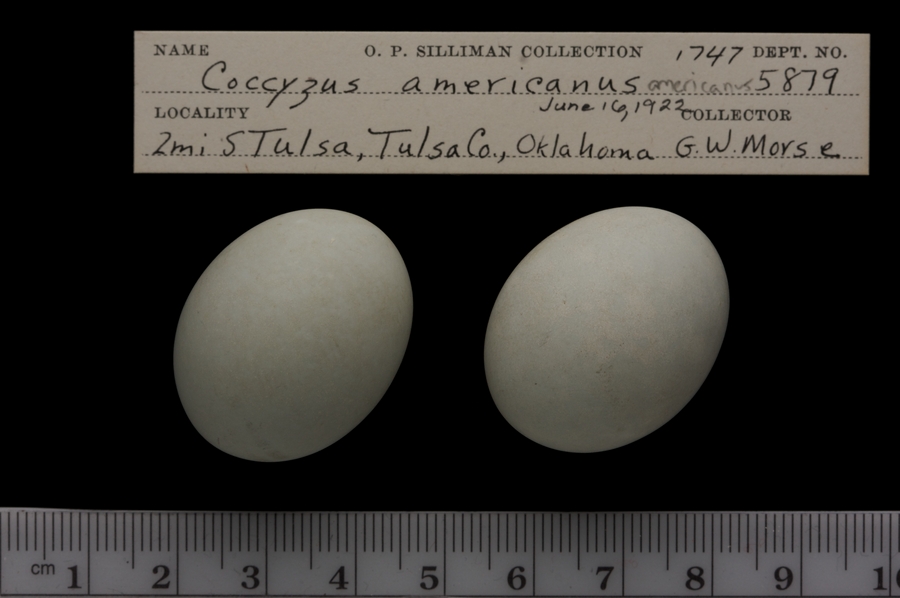 NAME O. P. SILLIMAN COLLECTION 1747 DEPT. NO.
Coccyzus americanus americanus 5879
LOCALITY June 16, 1922 COLLECTOR
2mi S Tulsa, Tulsa Co., Oklahoma G. W. Morse
cm 1 2 3 4 5 6 7 8 9